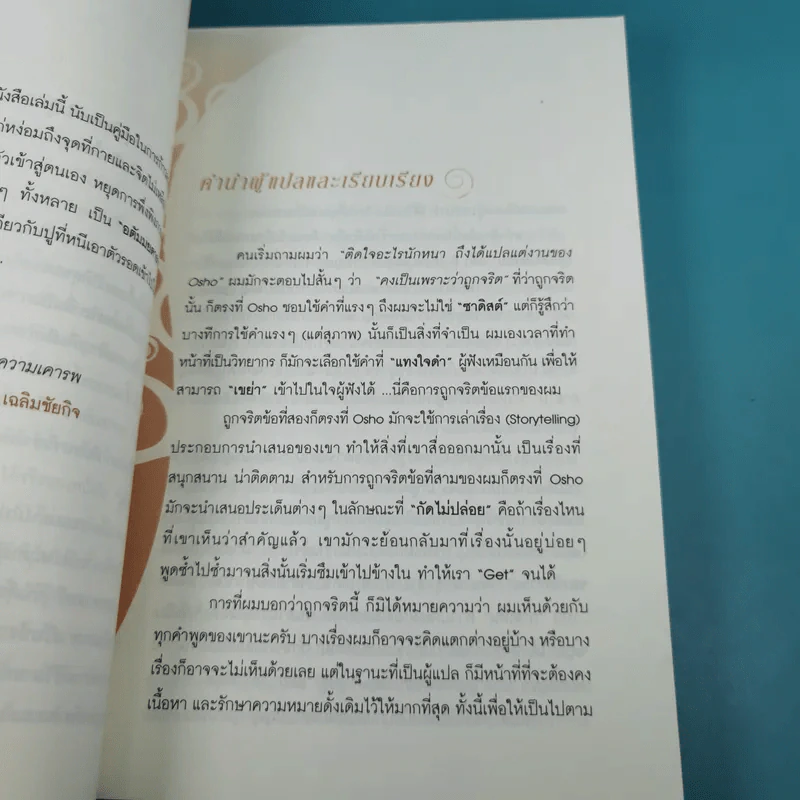 นังสือเล่มนี้ นับเป็นคู่มือในการ
ถึงจุดที่กายและจิตไม่
เข้าสู่ตนเอง หยุดการพึ่ง
ๆ ทั้งหลาย เป็น
เกี่ยวกับปูที่หนีเอาตัวรอด
ความเคารพ
เฉลิมชัยกิจ
คำนำผู้แปลและเรียบเรียง
คนเริ่มถามผมว่า “ติดใจอะไรนักหนา ถึงได้แปลแต่งานของ
Osho” ผมมักจะตอบไปสั้นๆ ว่า “คงเป็นเพราะว่าถูกจริต” ที่ว่าถูกจริต
นั้น ก็ตรงที่ Osho ชอบใช้คำที่แรงๆ ถึงผมจะไม่ใช่ “ซาดิสต์” แต่ก็รู้สึกว่า
บางทีการใช้คำแรงๆ (แต่สุภาพ) นั้นก็เป็นสิ่งที่จำเป็น ผมเองเวลาที่ทำ
หน้าที่เป็นวิทยากร ก็มักจะเลือกใช้คำที่ “แทงใจดำ” ผู้ฟังเหมือนกัน เพื่อให้
สามารถ “เขย่า” เข้าไปในใจผู้ฟังได้ ...นี่คือการถูกจริตข้อแรกของผม
ถูกจริตข้อที่สองก็ตรงที่ Osho มักจะใช้การเล่าเรื่อง (Storytelling)
ประกอบการนำเสนอของเขา ทำให้สิ่งที่เขาสื่อออกมานั้น เป็นเรื่องที่
สนุกสนาน น่าติดตาม สำหรับการถูกจริตข้อที่สามของผมก็ตรงที่ Osho
มักจะนำเสนอประเด็นต่างๆ ในลักษณะที่ “กัดไม่ปล่อย” คือถ้าเรื่องไหน
ที่เขาเห็นว่าสำคัญแล้ว เขามักจะย้อนกลับมาที่เรื่องนั้นอยู่บ่อยๆ
พูดซ้ำไปซ้ำมาจนสิ่งนั้นเริ่มซึมเข้าไปข้างใน ทำให้เรา “Get” จบได้
การที่ผมบอกว่าถูกจริตนี้ ก็มิได้หมายความว่า ผมเห็นด้วยกับ
ทุกคำพูดของเขานะครับ บางเรื่องผมก็อาจจะคิดแตกต่างอยู่บ้าง หรือบาง
เรื่องก็อาจจะไม่เห็นด้วยเลย แต่ในฐานะที่เป็นผู้แปล ก็มีหน้าที่ที่จะต้องคง
เนื้อหา และรักษาความหมายดั้งเดิมไว้ให้มากที่สุด ทั้งนี้เพื่อให้เป็นไปตาม